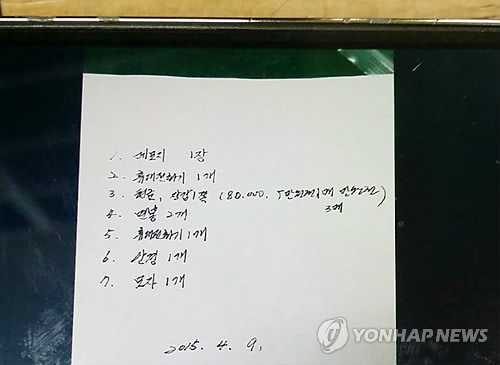 1. 메모지 1장
2. 휴대전화기 1개
3. 현금, 장갑 1쪽 (80,000. 5만원권 1매 만원권
3매)
4. 면봉 2개
5. 휴대전화기 1개
6. 안경 1개
7. 모자 1개
2015. 4. 9.
YONHAP NEWS